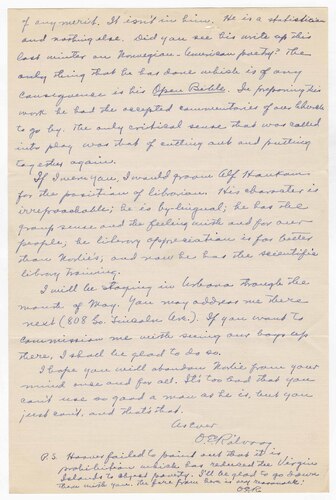 of any merit. It isn't in him. He is a statistician
and nothing else. Did you see his write up this
last winter on Norwegian-American poetry? The
only thing that he has done which is of any
consequence is his Open Bible. In preparing this
work he had the accepted commentaries of our church
to go by. The only critical sense that was called
into play was that of cutting out and putting
together again.
If I were you, I would groom Alf Haukom
for the position of librarian. His character is
irreproachable; he is by-lingual; he has the
group sense and the feeling with and for our
people; his library appreciation is far better
than Hodie's, and now he has the scientific
library training.
I will be staying in Urbana through the
month of May. You may address me there
next (808 So. Lincoln Ave.). If you want to
commission me with seeing our boys up
there, I shall be glad to do so.
I hope you will abandon from your
mind once and for all. It's too bad that you
can't use as good a man as he is, but you
just can't, and that's that.
As Ever
P.S. Hoover failed to point out that it is
prohibition which has reduced the Virgin
Islands to abject poverty. I'll be glad to go down
there with you. The fare from here is very reasonable.